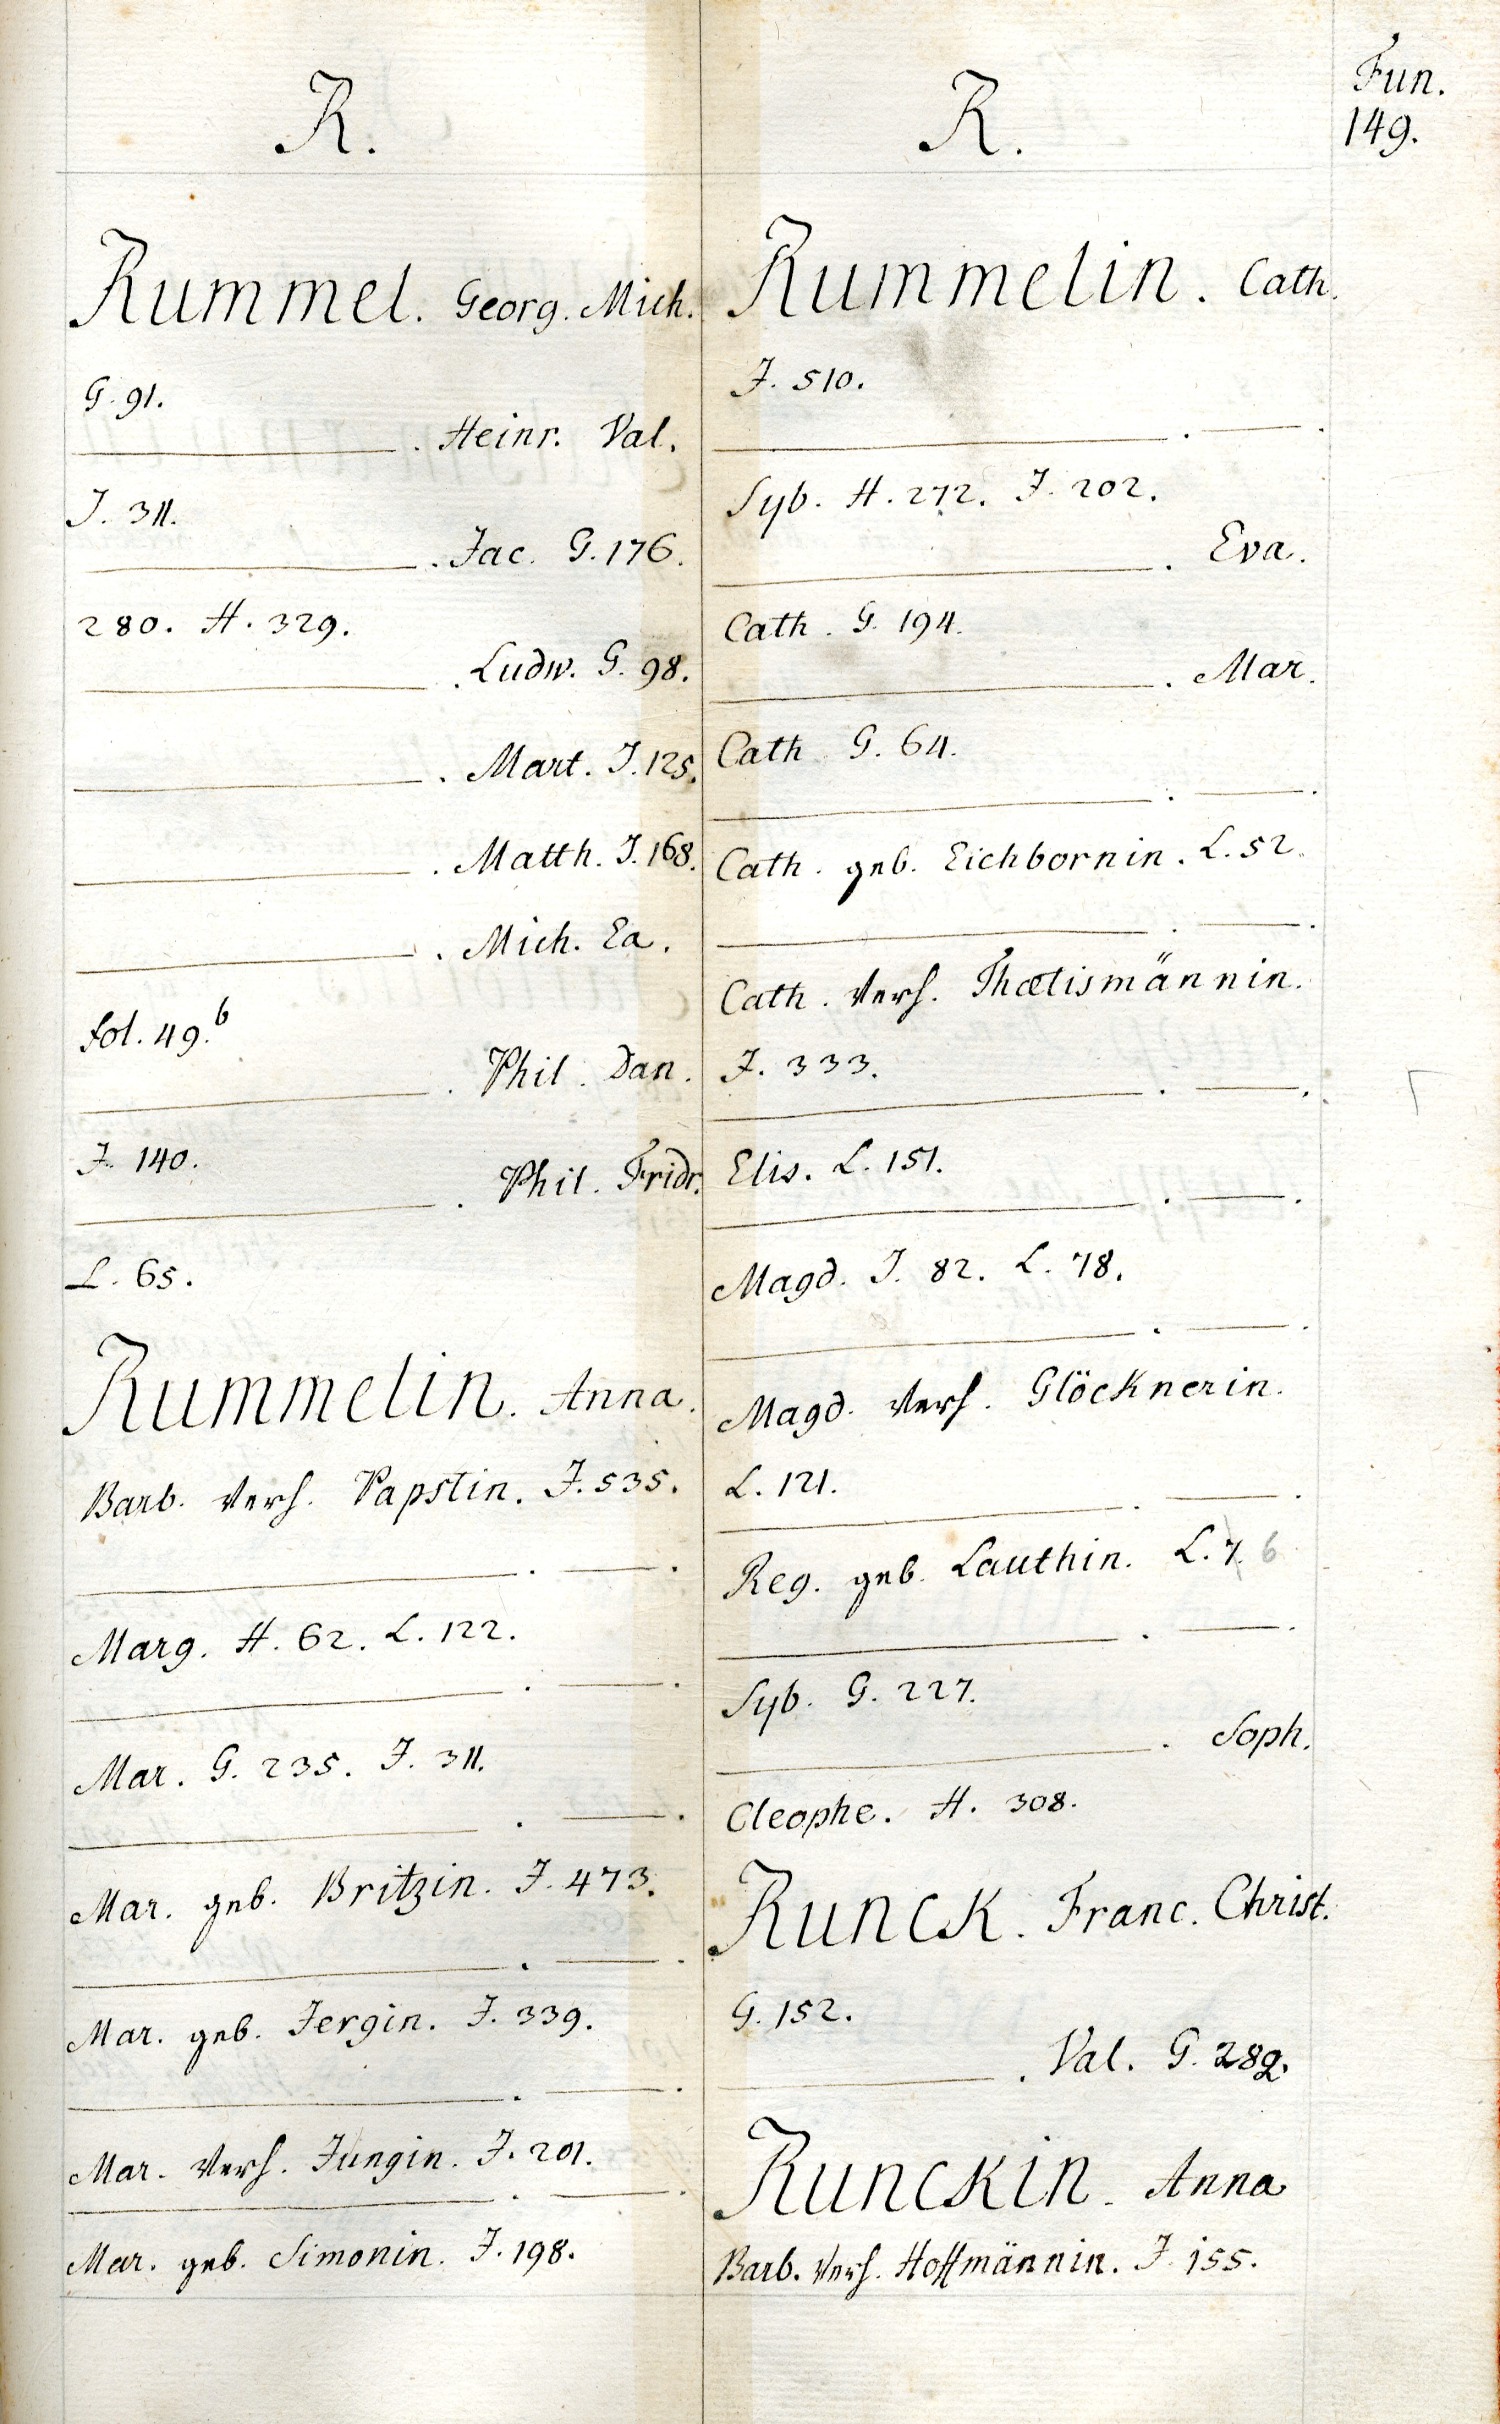 Fun.
149.
R.
Rummel. Georg. Mich.
G. 91.
———. Heinr. Val.
J. 311.
———. Jac. G. 176.
280. H. 329.
———. Ludw. G. 98.
———. Mart. J. 125.
———. Matth. J. 168.
———. Mich. Ea.
fol. 49.b
———. Phil. Dan.
J. 140.
———. Phil. Fridr.
L. 65.
Rummelin. Anna.
Barb. Verh. Papstin. J. 535.
———. ———.
Marg. H. 62. L. 122.
———. ———.
Mar. G. 235. J. 311.
———. ———.
Mar. geb. Britzin. J. 473.
———. ———.
Mar. geb. Jergin. J. 339.
———. ———.
Mar. Verh. Jungin. J. 201.
———. ———.
Mar. geb. Simonin. J. 198.
R.
Rummelin. Cath.
J. 510.
———. ———.
Syb. H. 272. J. 202.
———. Eva.
Cath. G. 194.
———. Mar.
Cath. G. 64.
———. ———.
Cath. geb. Eichbornin. L. 52.
———. ———.
Cath. Verh. Thætismännin.
J. 333.
———. ———.
Elis. L. 151.
———. ———.
Magd. J. 82. L. 78.
———. ———.
Magd. Verh. Glöcknerin.
L. 121.
———. ———.
Reg. geb. Lauthin. L. 7. 6
———. ———.
Syb. G. 227.
———. Soph.
Cleophe. H. 308.
Runck. Franc. Christ.
G. 152.
———. Val. G. 282.
Runckin. Anna
Barb. Verh. Hoffmännin. J. 155.